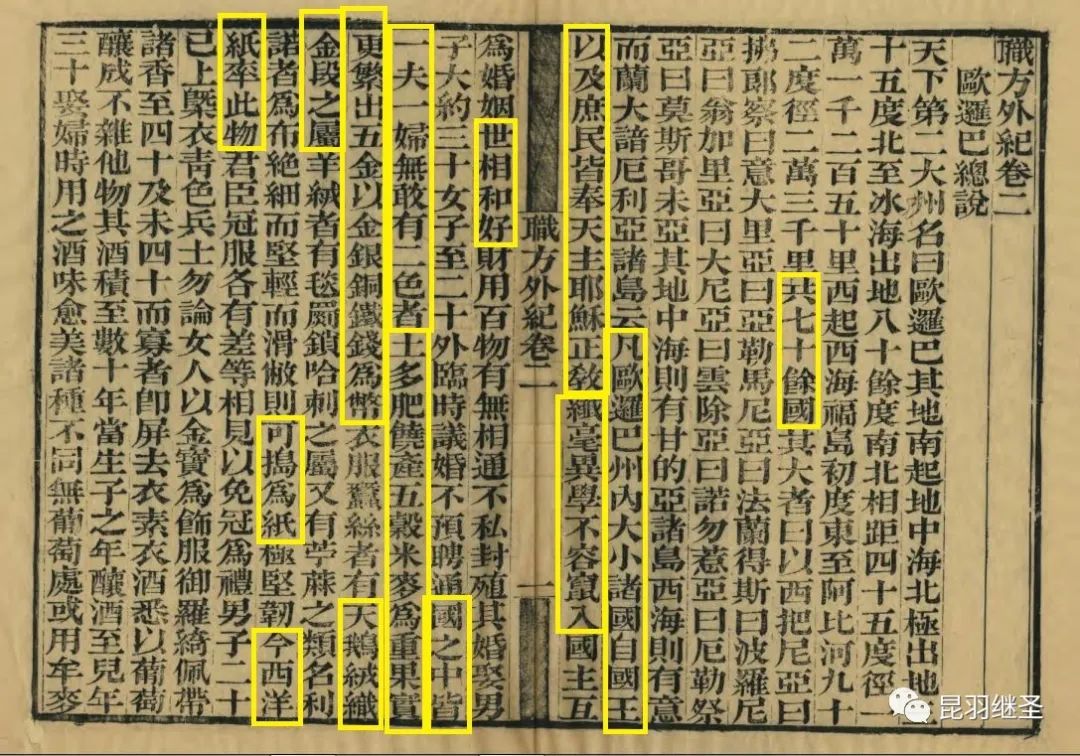 職方外紀卷二
歐邏巴總說
天下第二大州名曰歐邏巴其地南起地中海北極出地三
十五度北至冰海出地八十餘度南北相距四十五度徑一
萬一千二百五十里西起西海福島初度東至阿比河九十
二度徑二萬三千里共七十餘國其大者曰以西把尼亞曰
拂郎察曰意大里亞曰亞勒馬尼亞曰法蘭得斯曰波羅尼
亞曰翁加里亞曰大尼亞曰雪除亞曰諾勿惹亞曰厄勒祭
亞曰莫斯哥未亞其地中海則有甘的亞諸島西海則有意
而蘭大諳厄利亞諸島云凡歐邏巴州內大小諸國自國王
以及庶民皆奉天主耶穌正敎纖毫異學不容竄入國主互
職方外紀卷二
一
爲婚姻世相和好財用百物有無相通不私封殖其婚娶男
子大約三十女子至二十外臨時議婚不預聘通國之中皆
一夫一婦無敢有二色者土多肥饒產五穀米麥爲重果實
更繁出五金以金銀銅鐵錢爲幣衣服蠶絲者有天鵝絨織
金段之屬羊絨者有毯罽鎖哈剌之屬又有苧蔴之類名利
諾者爲布絶細而堅輕而滑敝則可搗爲紙極堅韌今西洋
紙率此物君臣冠服各有差等相見以免冠爲禮男子二十
已上槩衣靑色兵士勿論女人以金寶爲飾服御羅綺佩帶
諸香至四十及未四十而寡者卽屏去衣素衣酒悉以葡萄
釀成不雜他物其酒積至數十年當生子之年釀酒至兒年
三十娶婦時用之酒味愈美諸種不同無葡萄處或用牟麥
昆羽继圣